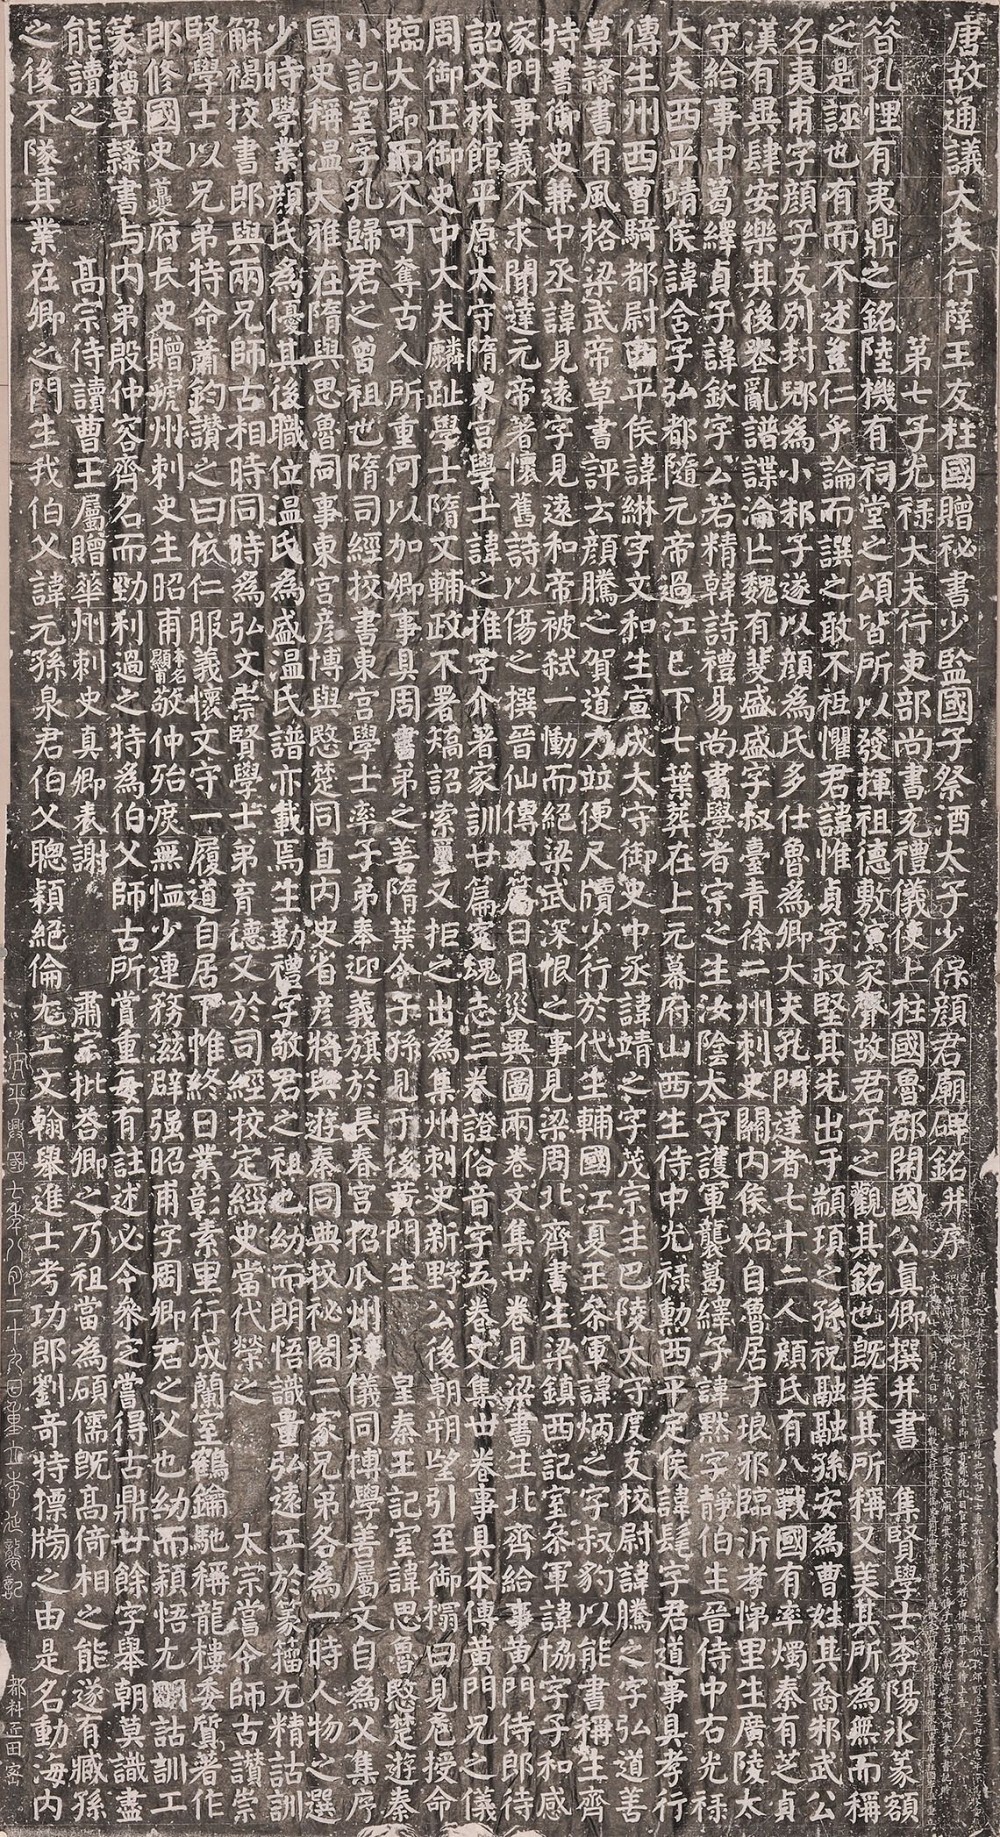 唐故通議大夫行薛王友柱國贈祕書少監國子祭酒太子少保顏君廟碑銘并序
第七子光祿大夫行吏部尚書充禮儀使上柱國魯郡開國公真卿撰并書 集賢學士李陽冰篆額
昔孔悝有夷鼎之銘陸機有祠堂之頌皆所以發揮祖德敷演家聲故君子之觀其銘也既美其所稱又美其所為無而稱
之是誣也有而不述豈仁乎論而譔之敢不祖懼君諱惟貞字叔堅其先出于顓頊之孫祝融融孫安為曹姓其裔邾武公
名夷甫字顏子友別封郳為小邾子遂以顏為氏多仕魯為卿大夫孔門達者七十二人顏氏有八戰國有率燭秦有芝貞
漢有異肆安樂其後喪亂譜諜淪亡魏有斐盛盛字叔臺青徐二州刺史關內侯始自魯居于琅邪臨沂孝悌里生廣陵太
守給事中葛繹貞子諱欽字公若精韓詩禮易尚書學者宗之生汝陰太守護軍襲葛繹子諱默字靜伯生晉侍中右光祿
大夫西平靖侯諱含字弘都隨元帝過江已下七葉葬在上元幕府山西生侍中光祿勳西平定侯諱髦字君道事具孝行
傳生州西曹騎都尉西平侯諱綝字文和生宣成太守御史中丞諱靖之字茂宗生巴陵太守度支校尉諱騰之字弘道善
草隸書有風格梁武帝草書評云顏騰之賀道力並便尺牘少行於代生輔國江夏王參軍諱炳之字叔豹以能書稱生齊
持書御史兼中丞諱見遠字見遠和帝被弒一慟而絕梁武深恨之事見梁周北齊書生梁鎮西記室參軍諱協字子和感
家門事義不求聞達元帝著懷舊詩以傷之撰晉仙傳五篇日月災異圖兩卷文集廿卷見梁書生北齊給事黃門侍郎待
詔文林館平原太守隋東宮學士諱之推字介著家訓廿篇冤魂志三卷證俗音字五卷文集卅卷事具本傳黃門兄之儀
周御正御史中大夫麟趾學士隋文輔政不署矯詔索璽又拒之出為集州刺史新野公後朝朔望引至御榻曰見危授命
臨大節而不可奪古人所重何以加卿事具周書弟之善隋葉令子孫見于後黃門生 皇秦王記室諱思魯愍楚遊秦
小記室字孔歸君之曾祖也隋司經校書東宮學士率子弟奉迎義旗於長春宮招瓜州拜儀同博學善屬文自為父集序
國史稱溫大雅在隋與思魯同事東宮彥博與愍楚同直內史省彥將與遊秦同典校祕閣二家兄弟各為一時人物之選
少時學業顏氏為優其後職位溫氏為盛溫氏譜亦載焉生勤禮字敬君之祖也幼而朗悟識量弘遠工於篆籀尤精詁訓
解褐校書郎與兩兄師古相時同時為弘文崇賢學士弟育德又於司經校定經史當代榮之 太宗嘗令師古讚崇
賢學士以兄弟特命蕭鈞讚之曰依仁服義懷文守一履道自居下帷終日業彰素里行成蘭室鶴鑰馳稱龍樓委質著作
郎修國史夔府長史贈虢州刺史生昭甫本名顯甫敬仲殆庶無恤少連務滋辟强昭甫字周卿君之父也幼而穎悟尤明詁訓工
篆籀草隸書与內弟殷仲容齊名而勁利過之特為伯父師古所賞重每有註述必令參定嘗得古鼎廿餘字舉朝莫識盡
能讀之 高宗侍讀曹王屬贈華州刺史真卿表謝 肅宗批答卿之乃祖當為碩儒既高倚相之能遂有臧孫
之後不墜其業在卿之門生我伯父諱元孫泉君伯父聰穎絕倫尤工文翰舉進士考功郎劉奇特摽牓之由是名動海內